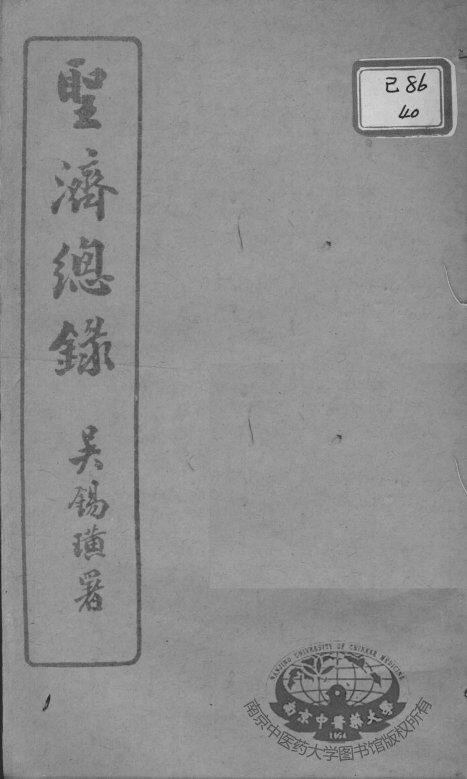 聖濟總錄
吳錫璜署
己86
40
NANJING UNIVERSITY OF CHINESE MEDICINE
南京中醫藥大學
1954
南京中医药大学图书馆版权所有